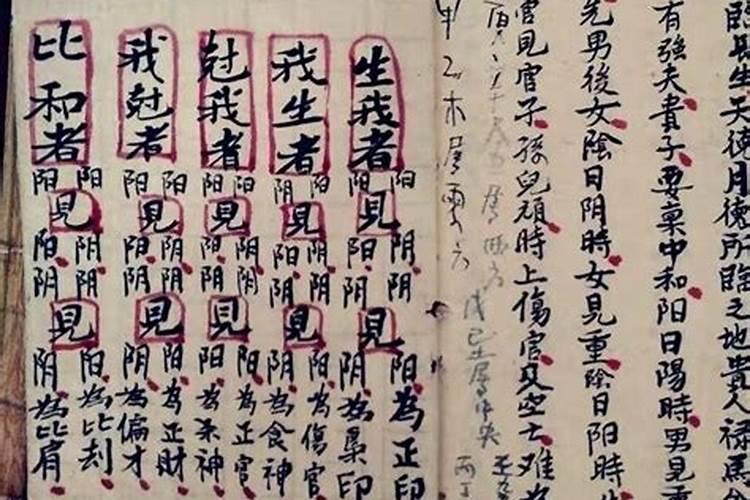 臨長生天德月德所臨之地貴人祿馬
有強夫貴子要稟中和阳日陽時男見
先男後女陰日阴時女見重陰日阳時
官見官子孫兒頑時上傷官又空亡難
戊己土属中央
甲乙木属
生我者
阳見阴阴見阳為正印
阳見阳阴見阴為梟印
我生者
阳見阴阴見阳為傷官
阴見阳阴見阴為食神
尅我者
阳見阴阴見阳為正官
阳見阳阴見阳為杀神
我尅者
阳見阴阴見阳為正財
阳見阳阴見阴為偏才
比和者
阳見阴阴見阳為比刦
阳見阳阴見阴為比肩